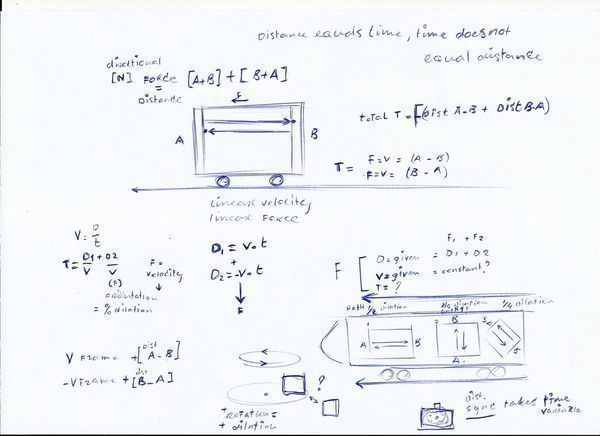 Distance equals time, time does not
equal distance
directional
[N] Force [A+B] + [B+A]
=
Distance
F
A
B
total T = F(Dist A-B + Dist B-A)
T = F=V = (A - B)
F=V = (B - A)
linear velocity
linear Force
V = D/t
T = D1/V + D2/V
(F)
F = velocity
orientation
= % dilation
D1 = V·t
+
D2 = -V·t
F
F1 + F2
F [ D = given = D1 + D2
V = given = constant?
T = ?
1/2 dilation
No dilation
1/4 dilation
A
B
B
A
V Frame + [A - B]
dist
-V Frame + [B - A]
dist
?
rotation =
+ dilation
dist.
sync takes time
variable